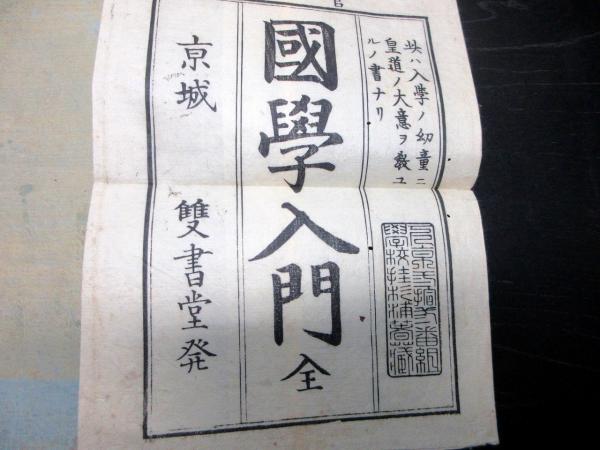 此ハ入學ノ幼童ニ
皇道ノ大意ヲ教ユ
ルノ書ナリ
國學入門 全
亰城 雙書堂発